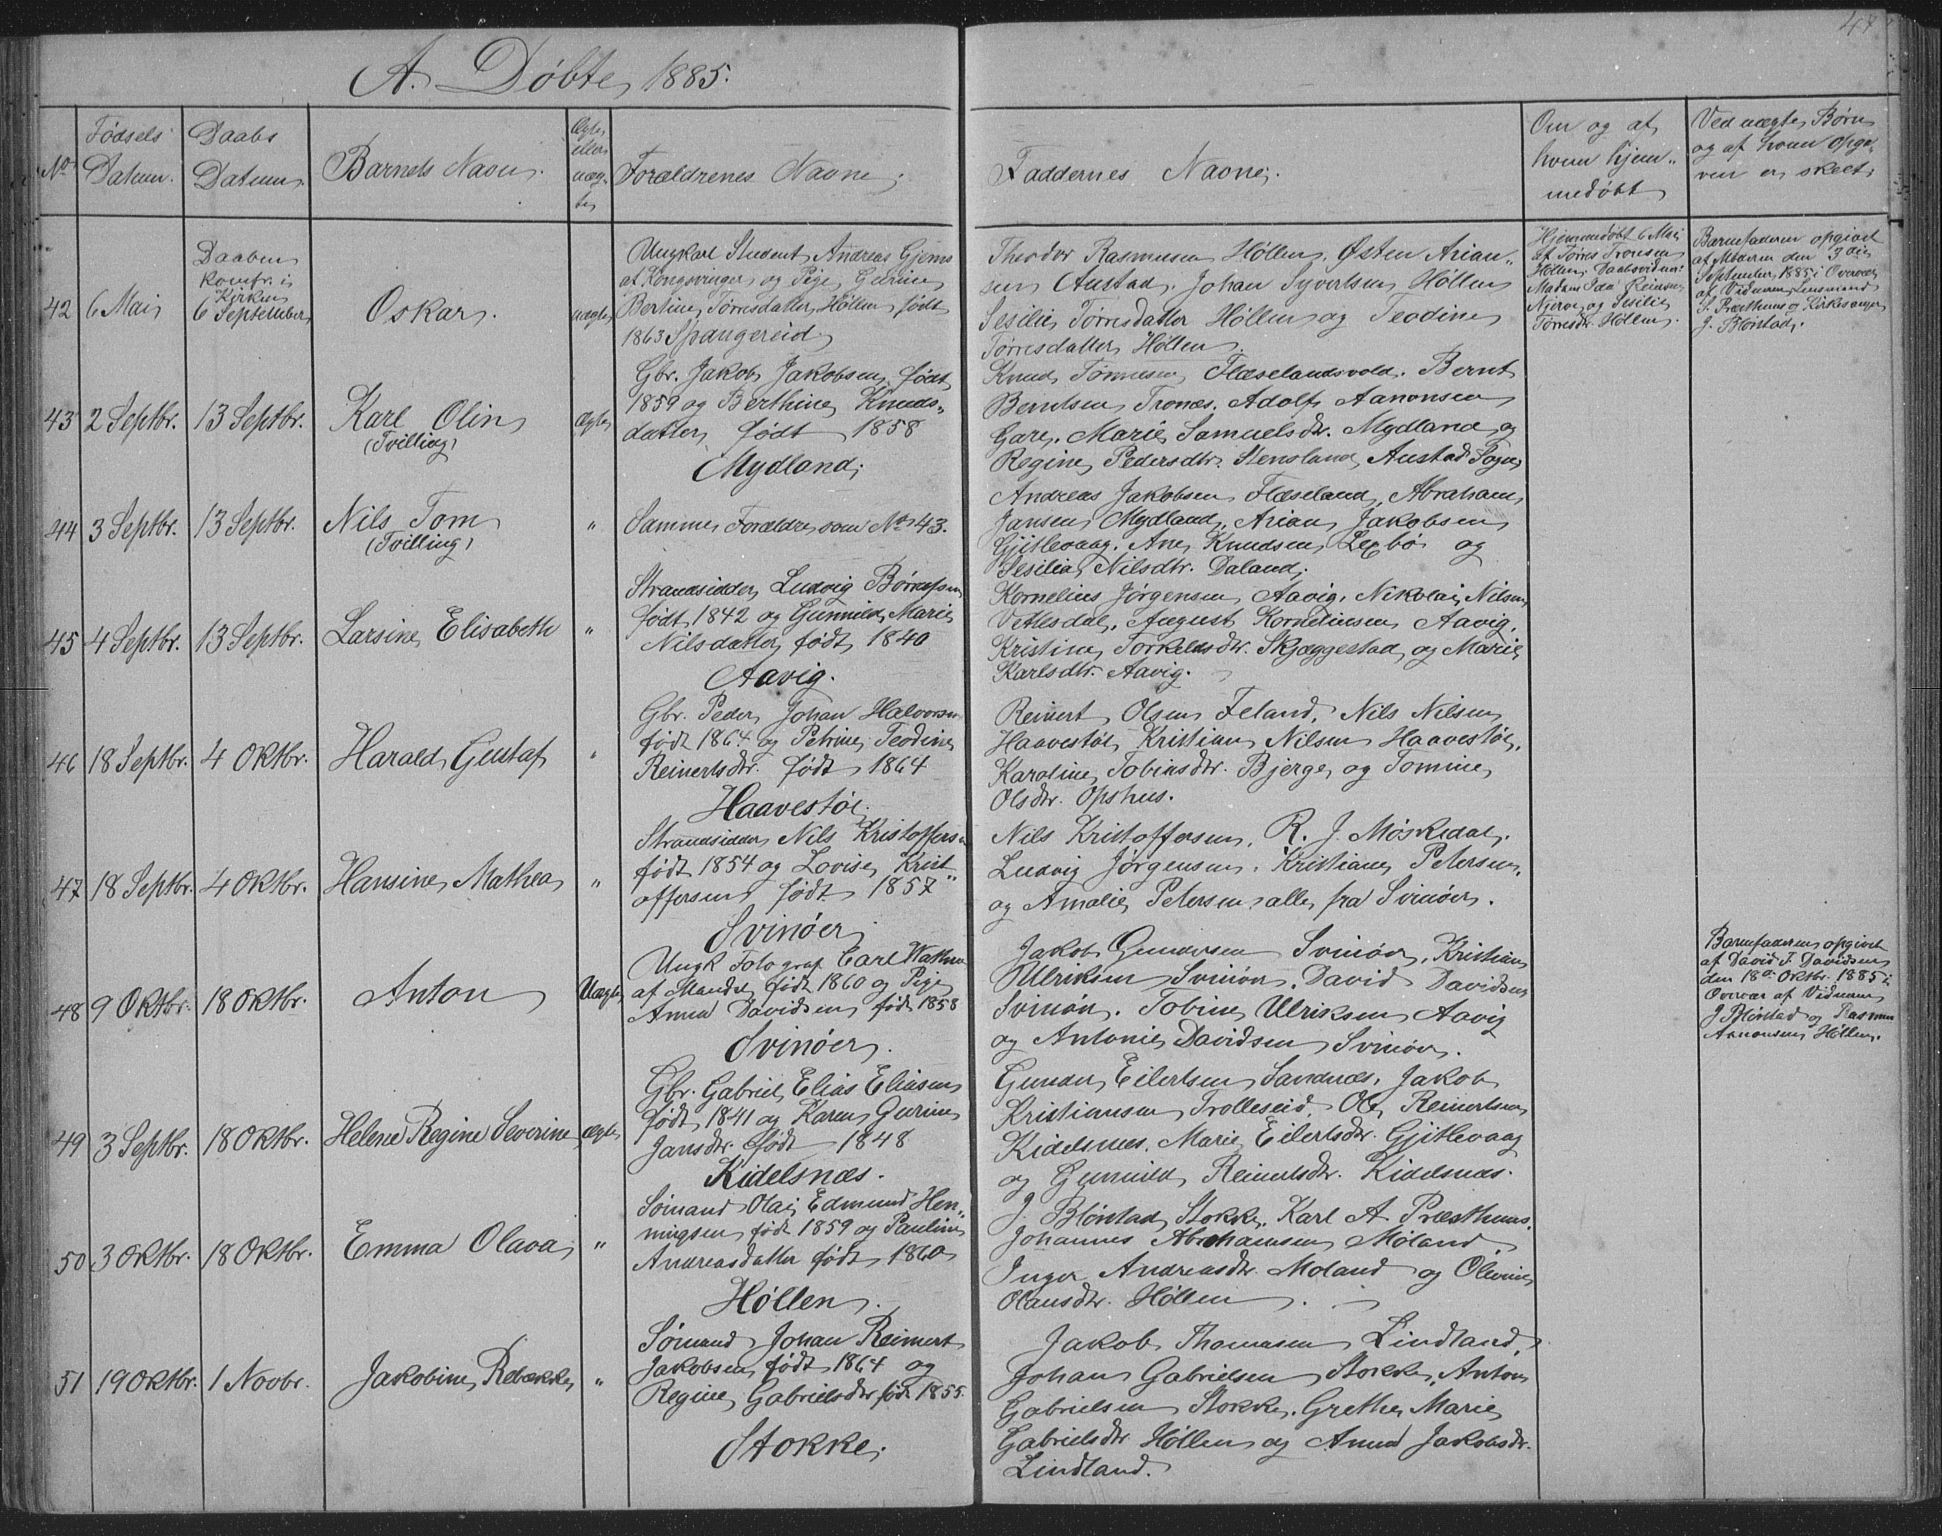 47
A. Døbte, 1885.
No
Fødsels Datum.
Daabs Datum.
Barnets Navn.
Ægte eller uægte
Forældrenes Navne.
Faddernes Navne.
Om og af hvem hjemmedøbt
Ved uægte Børn og af hvem opgaven er skeet.
42
6 Mai
Daaben
komfr. i
Kirken
6 September
Oskar.
uægte
Ungkarl Student Andreas Gjems
af Kongsvinger og Pige Gurine
Bertine Tørresdatter Høllen født
1863 Spangereid
Theodor Rasmussen Høllen, Østen Arian-
sen Austad, Johan Syvertsen Høllen
Sesilie Tørresdatter Høllen og Teodine
Tørresdatter Høllen.
Hjemmedøbt 6 Mai
af Tørres Tronsen
Høllen. Daabsvidner:
Madam Ida
og Sesilie
Tørresdr. Høllen.
Barnefaderen opgivet
af Moderen den 3die
September 1885 i Overvær
af Vidnerne Lensmand
J. Præsthuus og Kirkesanger
J. Blørstad.
43
2 Septbr.
13 Septbr.
Karl Olin
(Tvilling)
ægte
Gbr. Jakob Jakobsen født
1859 og Berthine Knuds-
datter født 1858
Mydland.
Knud Tønnesen Flæselandsvold. Bernt
Berntsen Trones. Adolf Aanonsen
Gare. Marie Samuelsdr. Mydland og
Regine Pedersdtr. Stensland, Austad Sogn
44
3 Septbr.
13 Septbr.
Nils Tom
(Tvilling)
"
Samme Forældre som No 43.
Andreas Jakobsen Flæseland, Abraham
Jansen Mydland. Arian Jakobsen
Gjitlevaag. Ane Knudsen Lexbø og
Sesilia Nilsdtr. Daland.
45
4 Septbr.
13 Septbr.
Larsine Elisabeth
"
Strandsidder Ludvig Børresen
født 1842 og Gunnild Marie
Nilsdatter født 1840
Aavig.
Kornelius Jørgensen Aavig. Nikolai Nilsen
Vetlesdal. August Korneliusen Aavig.
Kristine Torkelsdr. Skjæggestad og Marie
Karlsdtr. Aavig.
46
18 Septbr.
4 Oktbr.
Harald Gustaf
"
Gbr. Peder Johan Halvorsen
født 1864 og Petrine Teodine
Reinertsdtr. født 1864
Haavestøl.
Reinert Olsen Feland. Nils Nilsen
Haavestøl Kristian Nilsen Haavestøl.
Karoline Tobinsdtr. Bjerge og Tomine
Olsdtr. Opshus.
47
18 Septbr.
4 Oktbr.
Hansine Mathea
"
Strandsidder Nils Kristoffersen
født 1854 og Lovise Krist-
offersen født 1857
Svinøer.
Nils Kristoffersen, R. J. Møskedal.
Ludvig Jørgensen. Kristiane Petersen.
og Amalie Petersen alle fra Svinøer.
48
9 Oktbr.
18 Oktbr.
Anton
Uægte
Ungk Fotograf Carl Wathne
af Mandal født 1860 og Pige
Anna Davidsen født 1858
Svinøer.
Jakob Gundersen Svinøer, Kristian
Ulriksen Svinøer. David Davidsen
Svinøer. Tobine Ulriksen Aavig
og Antonie Davidsen Svinøer.
Barnefaderen opgivet
af David F. Davidsen
den 18de Oktbr. 1885 i
Overvær af Vidnerne
J Blørstad og Rasmus
Aanonsen Høllen.
49
3 Septbr.
18 Oktbr.
Helene Regine Severine
ægte
Gbr. Gabriel Elias Eliasen
født 1841 og Karen Gurine
Jansdtr. født 1848
Kidelsnæs.
Gunder Eilertsen Sandnæs, Jakob
Kristiansen Trolleseid. Ole Reinertsen
Kidelsnæs. Marie Eilertsdtr. Gjitlevaag
og Gunnild Reinertsdtr. Kidelsnæs.
50
3 Oktbr.
18 Oktbr.
Emma Olava
"
Sømand Olai Edmund Hen-
ningsen født 1859 og Pauline
Andreasdatter født 1860
Høllen.
J. Blørstad Stokke. Karl A. Præsthuus.
Johannes Abrahamsen Møland
Inger Andreasdtr. Møland og Olevine
Olausdtr. Høllen.
51
19 Oktbr.
1 Novbr.
Jakobine Rebække
"
Sømand Johan Reinert
Jakobsen født 1864 og
Regine Gabrielsdtr født 1855.
Stokke.
Jakob Thomasen Lindland,
Johan Gabrielsen Stokke, Anton
Gabrielsen Stokke. Grethe Marie
Gabrielsdtr Høllen og Anna Jakobsdtr.
Lindland.